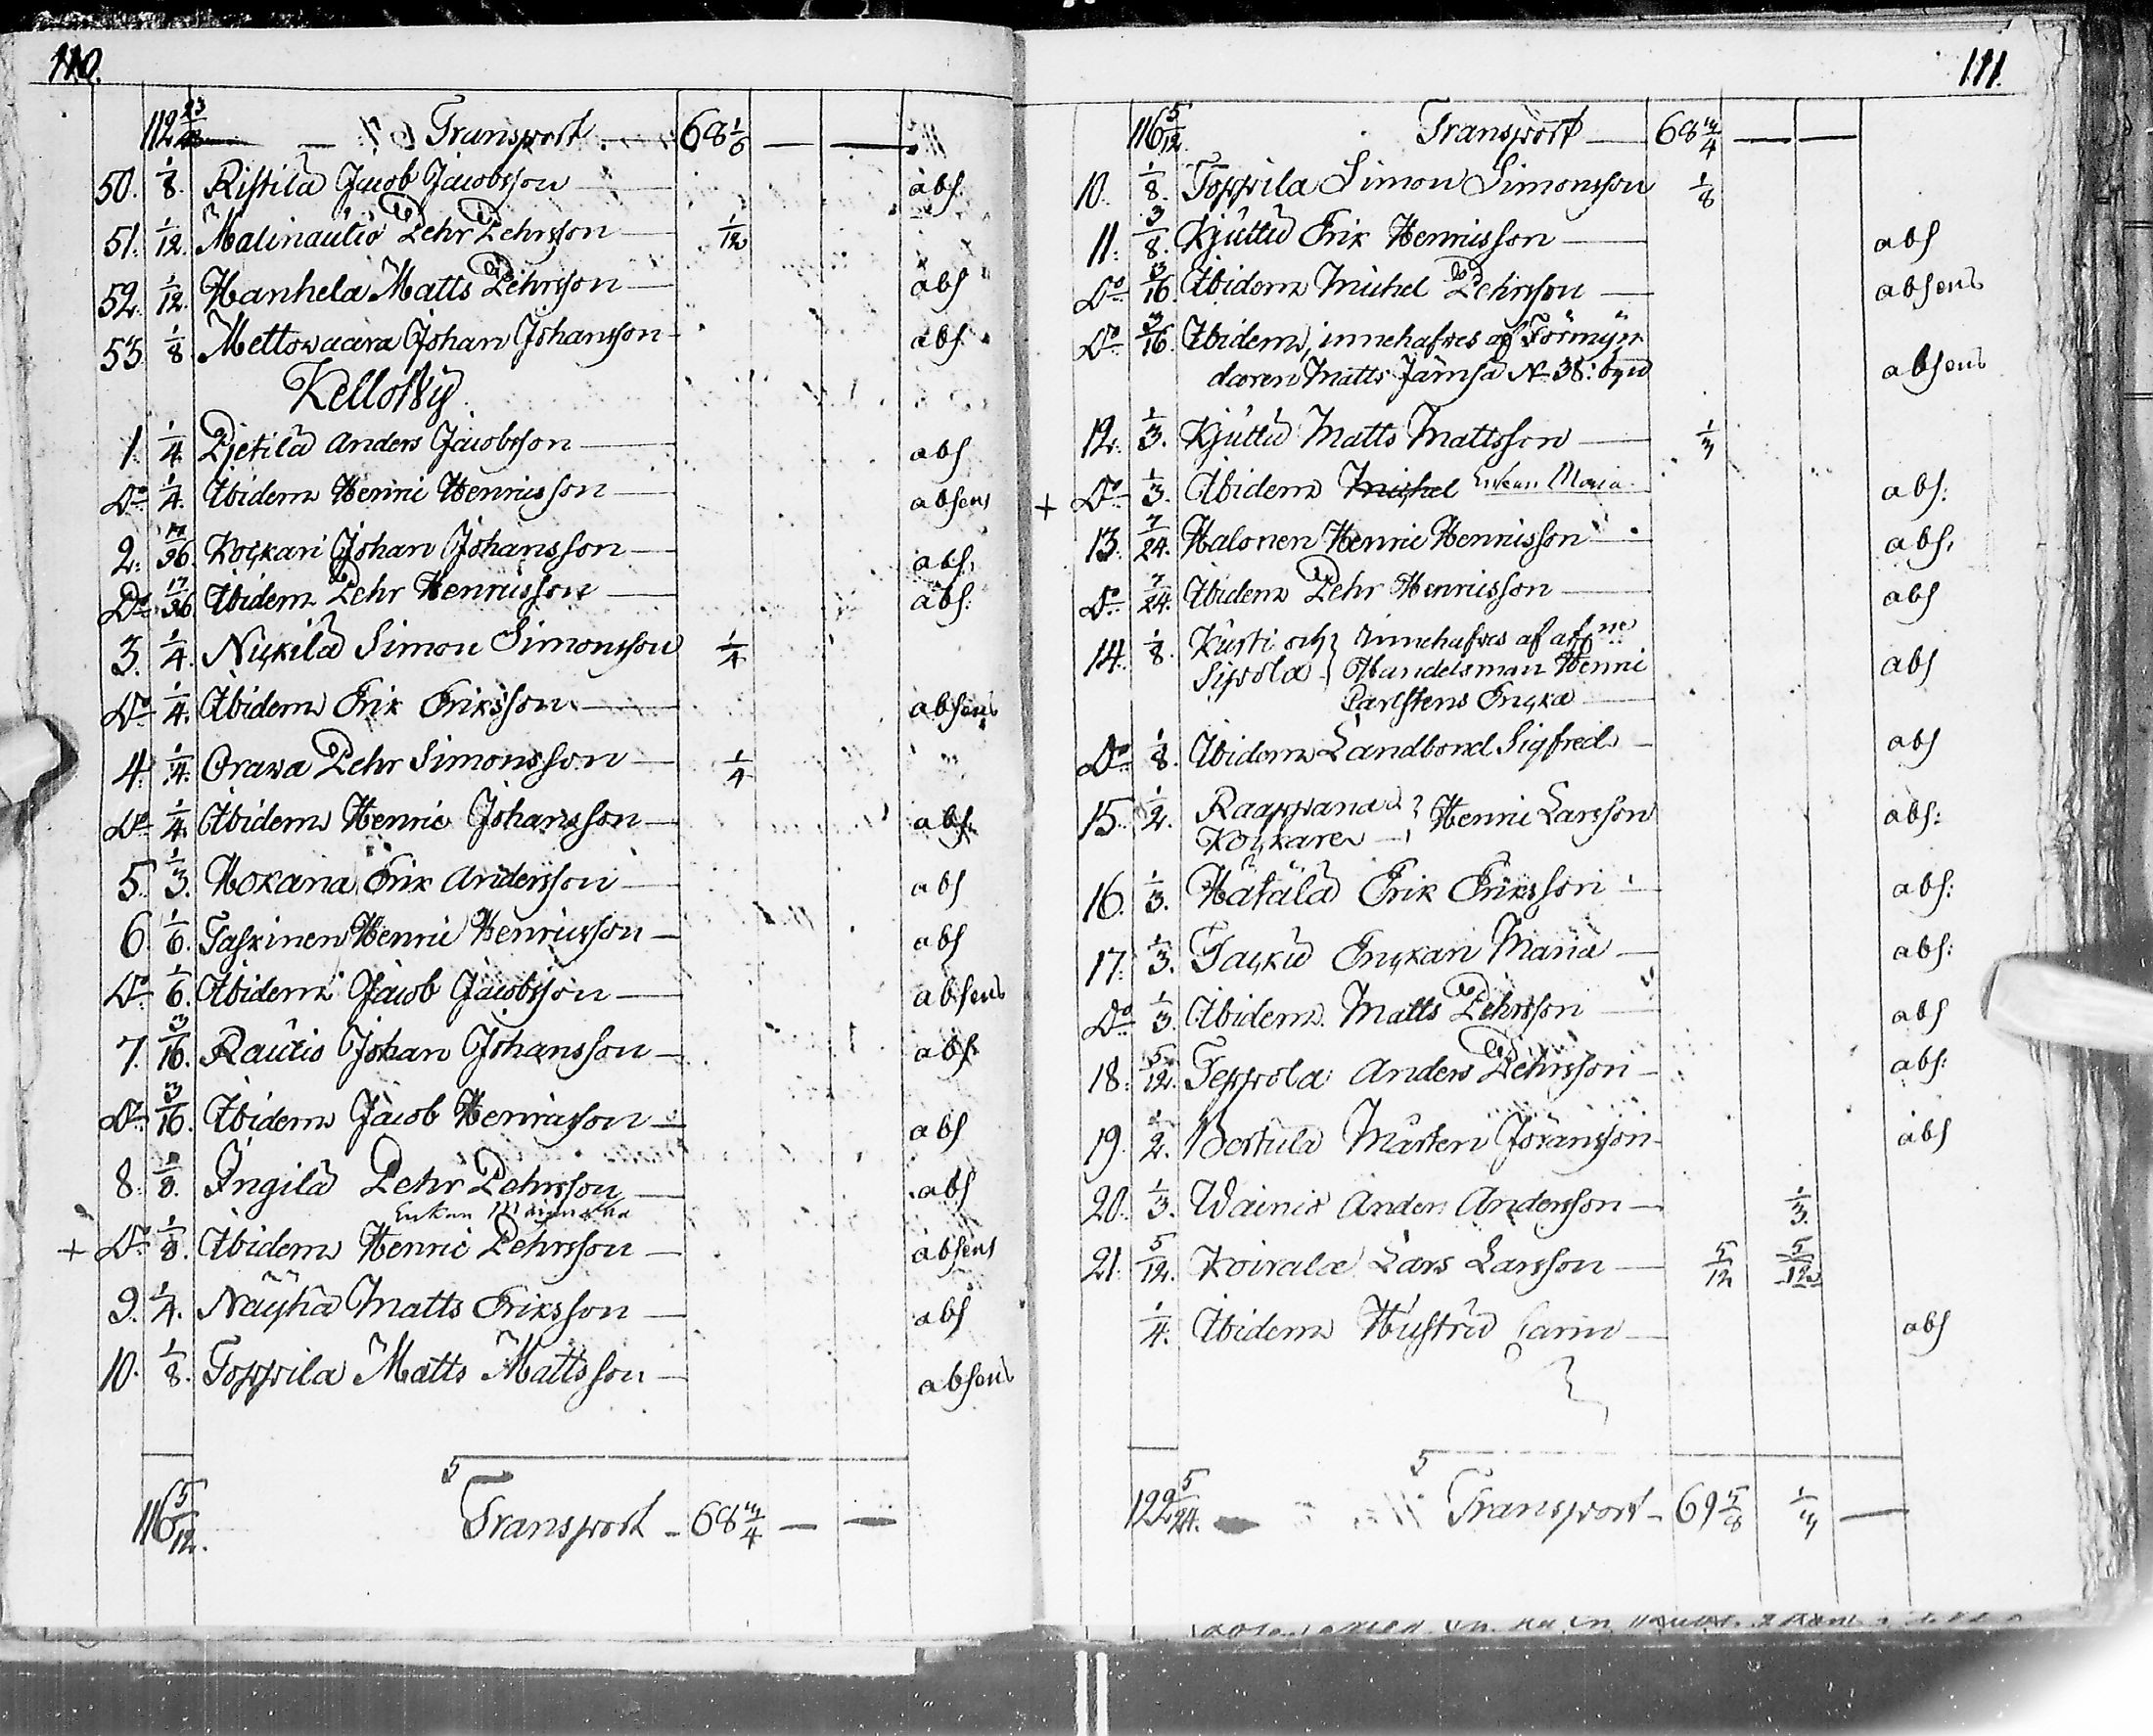 110.
112 23/48 Transport 68 1/6 — —
50. 1/8. Ristila Jacob Jacobsson abs.
51. 1/12. Malinautio Pehr Pehrsson 1/12
52. 1/12. Hanhela Matts Pehrsson abs
53. 1/8 Mettowaara Johan Johansson abs.
Kello By
1. 1/4 Pjetilä Anders Jacobsson abs
Do 1/4. Ibidem Henric Henricsson absens
2. 17/36. Kockari Johan Johansson abs,
Do 17/36 Ibidem Pehr Henricsson abs:
3. 1/4. Nickilä Simon Simonsson 1/4
Do 1/4. Ibidem Erik Eriksson absens
4. 1/4. Orawa Pehr Simonsson 1/4
Do 1/4. Ibidem Henric Johansson abs.
5. 1/3. Hokana Erik Andersson abs
6. 1/6. Taskinen Henric Henricsson abs
Do 1/6. Ibidem Jacob Jacobsson absens
7. 3/16. Rautio Johan Johansson abs.
Do 3/16. Ibidem Jacob Henricsson abs
8. 1/8. Ingilä Pehr Pehrsson abs
Enkan
+ Do 1/8. Ibidem Henric Pehrsson absens
9. 1/4. Näyhä Matts Eriksson abs
10. 1/8. Toppila Matts Mattsson absens
5
116 5/12. Transport 68 3/4 — —
111.
116 5/12 Transport 68 3/4 — —
10. 1/8. Toppila Simon Simonsson 1/8
11. 3/8. Kjuttu Erik Henricsson abs
Do 3/16. Ibidem Michel Pehrsson absens
Do 3/16. Ibidem, innehafves af Förmyn
daren Matts Jämsä No 38: byn absens
12. 1/3. Kjuttu Matts Mattsson 1/3
+ Do 1/3. Ibidem Michel Enkan Maria abs:
13. 7/24. Halonen Henric Henricsson abs,
Do 7/24. Ibidem Pehr Henricsson abs
14. 1/8. Kursti och } Innehafves af afl:ne
Sipola } Handelsman Henric abs
Carlstens Encka
Do 1/8. Ibidem Landbond Sigfred abs
15. 1/2. Raappana } Henric Larsson abs:
Kockare
16. 1/3. Hätälä Erik Eriksson abs:
17. 1/3. Tacku Enckan Maria abs:
Do 1/3. Ibidem Matts Pehrsson abs
18. 5/12. Teppola Anders Pehrsson abs:
19. 1/2. Bertula Mårten Jöransson abs
20. 1/3. Wainio Anders Andersson 1/3.
21. 5/12. Koirala Lars Larsson 5/12 5/12
1/4. Ibidem Hustru Carin abs
5
122 5/24. Transport 69 5/8 1/3 —